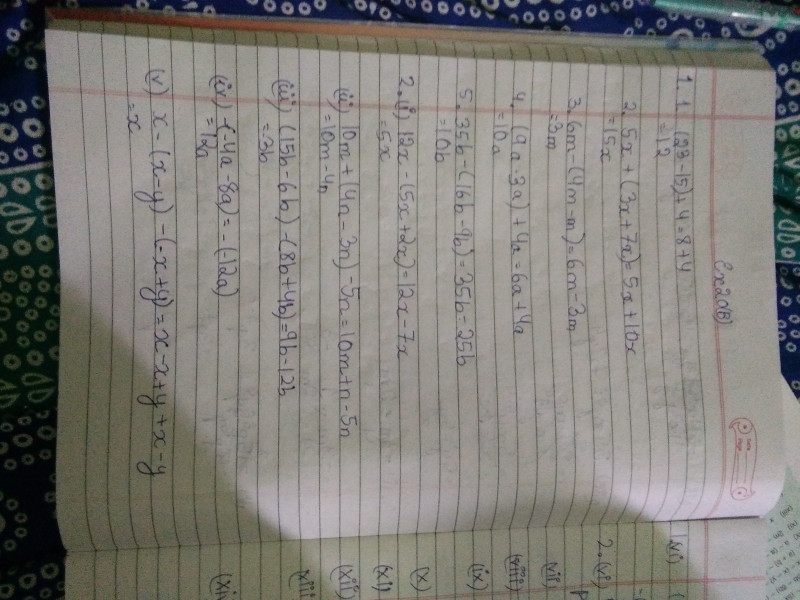 Ex20(B)
1. 1. (23-15)+4=8+4
=12
2. 5x+(3x+7x)=5x+10x
=15x
3. 6m-(4m-m)=6m-3m
=3m
4. (9a-3a)+4a=6a+4a
=10a
5. 35b-(16b-9b)=35b-25b
=10b
2. (i) 12x-(5x+2x)=12x-7x
=5x
(ii) 10m+(4n-3n)-5n=10m+n-5n
=10m-4n
(iii) (15b-6b)-(8b+4b)=9b-12b
=-3b
(iv) -(-4a-8a)=-(-12a)
=12a
(v) x-(x-y)-(-x+y)=x-x+y+x-y
=x
(vi)
2. (vi)
(vii)
(viii)
(ix)
(x)
(xi)
(xii)
(xiii)